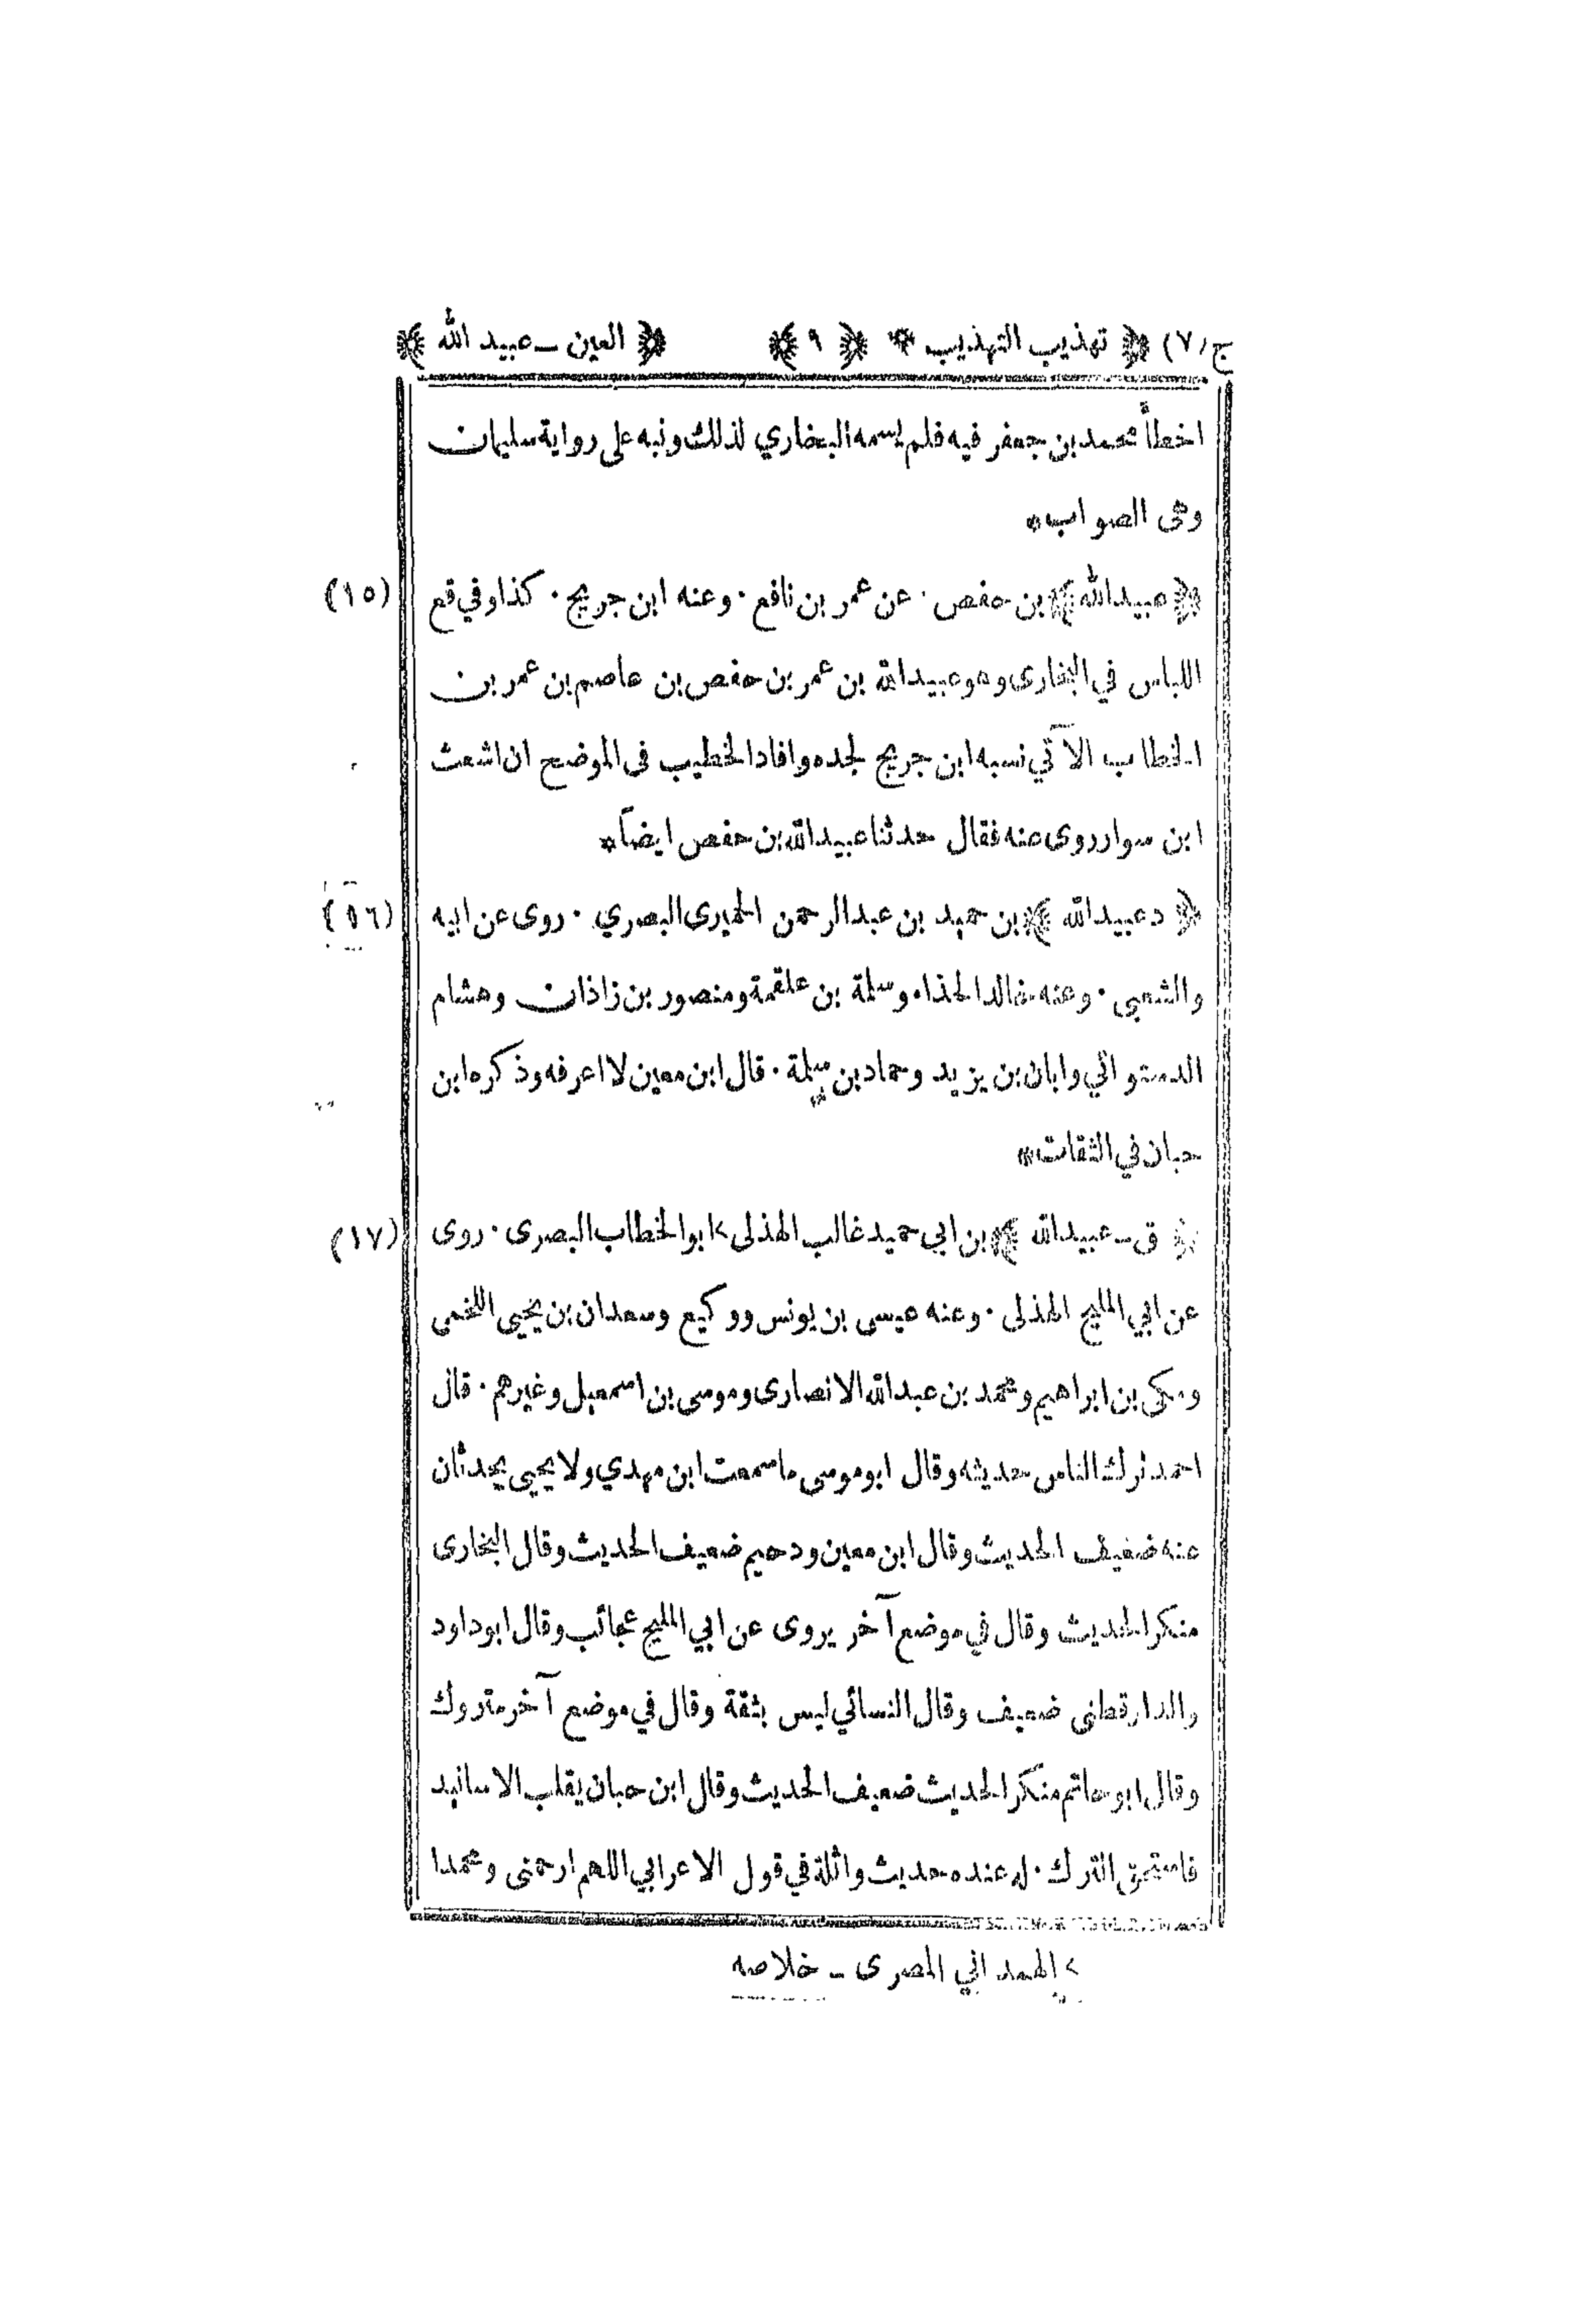 ج (٧) ﴿ تهذيب التهذيب * ﴿ ٩ ﴾ ﴿ العين ـ عبيد الله ﴾
اخطأ محمد بن جعفر فيه فلم يسمه البخاري لذلك ونبه على رواية سليمان
وهى الصواب *
﴿ عبيد الله ﴾ بن حفص . عن عمر بن نافع . وعنه ابن جريج . كذا وقع في (١٥)
اللباس في البخارى وهو عبيد الله بن عمر بن حفص بن عاصم بن عمر بن
الخطاب الآتي نسبه ابن جريج لجده وافاد الخطيب فى الموضح ان اشعث
ابن سوار روى عنه فقال حدثنا عبيد الله بن حفص ايضاً *
﴿ د عبيد الله ﴾ بن حميد بن عبد الرحمن الحميرى البصري . روى عن ابيه (١٦)
والشعبي . وعنه خالد الحذاء وسلمة بن علقمة ومنصور بن زاذان وهشام
الدستوائي وابان بن يزيد وحماد بن سلمة . قال ابن معين لا اعرفه وذكره ابن
حبان في الثقات *
﴿ ق ـ عبيد الله ﴾ بن ابي حميد غالب الهذلى > ابو الخطاب البصرى . روى (١٧)
عن ابي المليح الهذلى . وعنه عيسى بن يونس ووكيع وسعدان بن يحيى اللخمى
ومكى بن ابراهيم ومحمد بن عبد الله الانصارى وموسى بن اسمعيل وغيرهم . قال
احمد ترك الناس حديثه وقال ابو موسى ما سمعت ابن مهدي ولا يحيى يحدثان
عنه ضعيف الحديث وقال ابن معين ودحيم ضعيف الحديث وقال البخارى
منكر الحديث وقال في موضع آخر يروى عن ابي المليح عجائب وقال ابو داود
والدارقطنى ضعيف وقال النسائي ليس بثقة وقال في موضع آخر متروك
وقال ابو حاتم منكر الحديث ضعيف الحديث وقال ابن حبان يقلب الاسانيد
فاستحق الترك . له عنده حديث واثلة في قول الاعرابي اللهم ارحمنى ومحمدا
> الهمداني المصرى ـ خلاصه